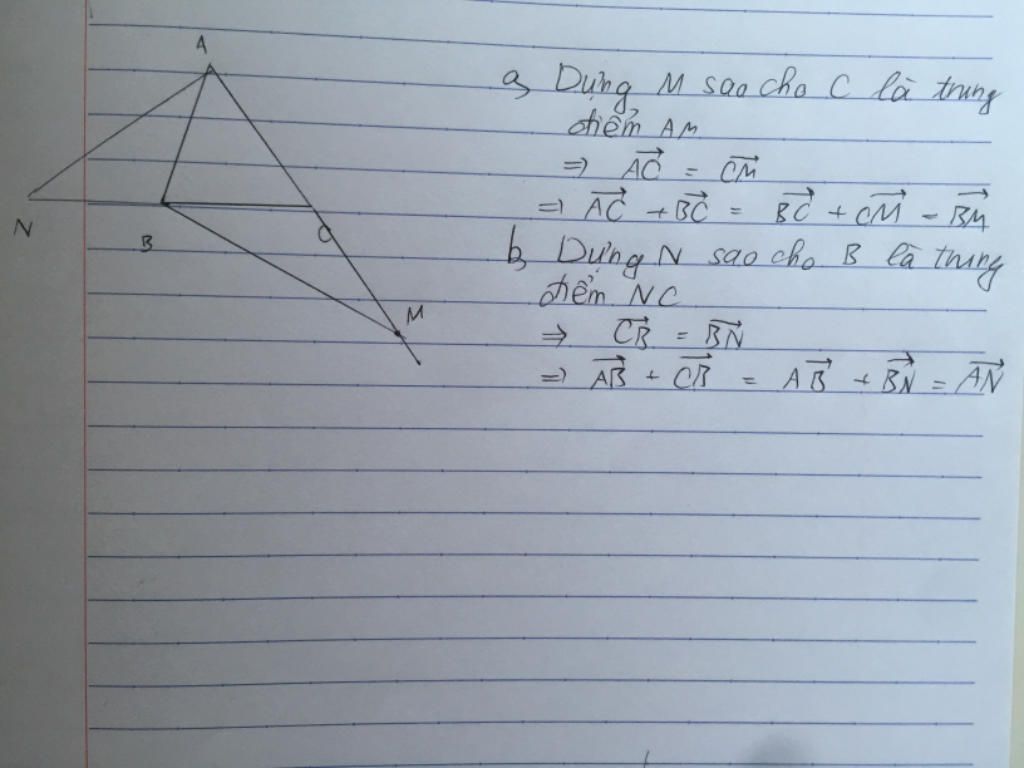 A
N
B
C
M
a, Dựng M sao cho C là trung
điểm AM
=> \overrightarrow{AC} = \overrightarrow{CM}
=> \overrightarrow{AC} + \overrightarrow{BC} = \overrightarrow{BC} + \overrightarrow{CM} = \overrightarrow{BM}
b, Dựng N sao cho B là trung
điểm NC
=> \overrightarrow{CB} = \overrightarrow{BN}
=> \overrightarrow{AB} + \overrightarrow{CB} = \overrightarrow{AB} + \overrightarrow{BN} = \overrightarrow{AN}